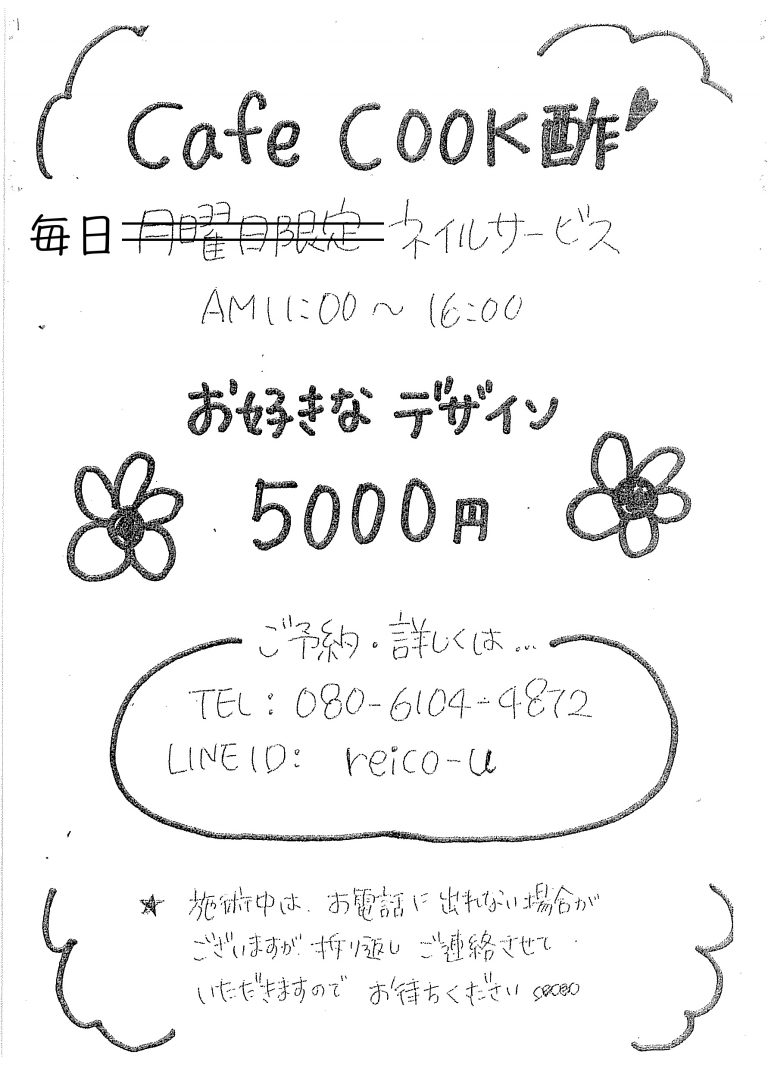 Cafe COOK酢
毎日 月曜日限定 ネイルサービス
AM11:00～16:00
お好きな デザイン
5000円
ご予約・詳しくは…
TEL: 080-6104-4872
LINE ID: reico-u
★ 施術中は、お電話に出れない場合が
ございますが、折り返し ご連絡させて
いただきますので お待ちください